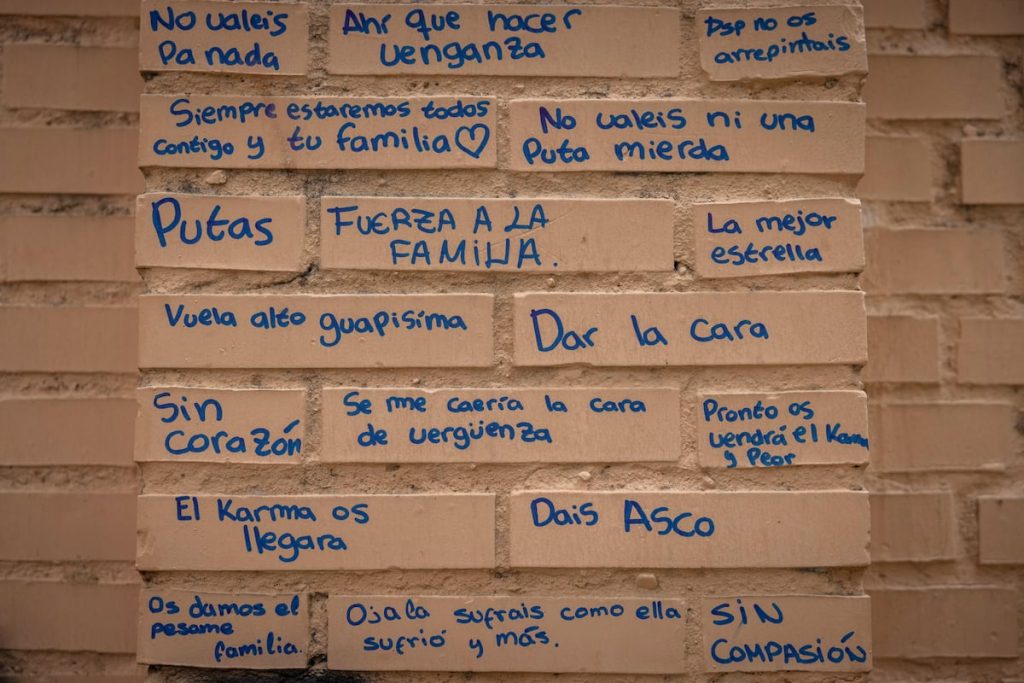 No valeis
Pa nada
Ahr que hacer
venganza
Dsp no os
arrepintais
Siempre estaremos todos
contigo y tu familia♡
No valeis ni una
Puta mierda
Putas
FUERZA A LA
FAMILIA.
La mejor
estrella
Vuela alto guapisíma
Dar la cara
Sin
corazón
Se me caería la cara
de vergüenza
Pronto os
vendrá el Karma
y Peor
El Karma os
llegara
Dais Asco
Os damos el
pesame
familia.
Ojala sufrais como ella
sufrió y más.
SiN
COMPASIÓN